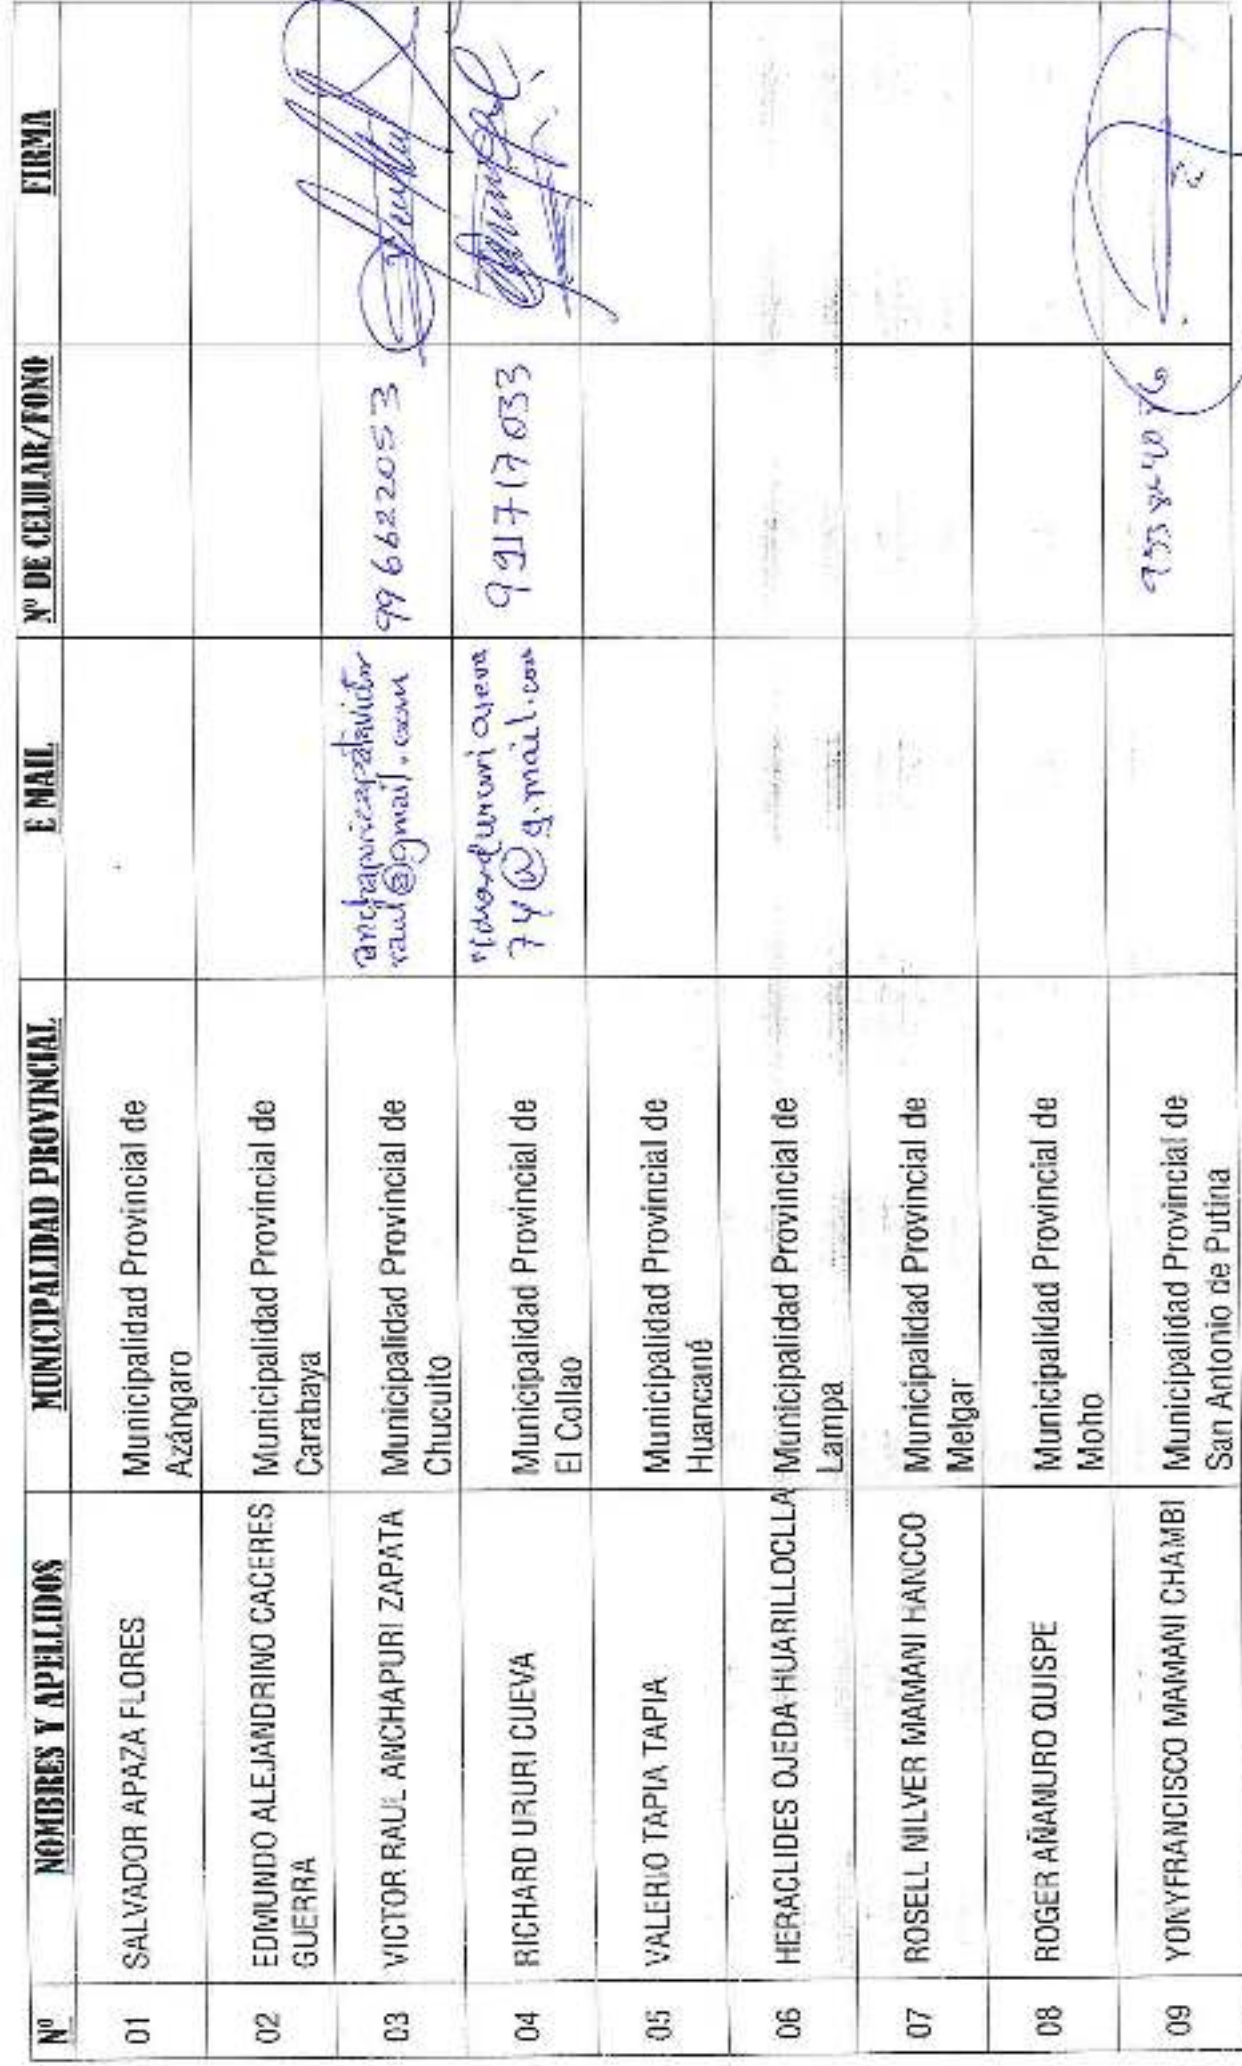 Nº NOMBRES Y APELLIDOS MUNICIPALIDAD PROVINCIAL E MAIL Nº DE CELULAR/FONO FIRMA
01 SALVADOR APAZA FLORES Municipalidad Provincial de
Azángaro
02 EDMUNDO ALEJANDRINO CACERES Municipalidad Provincial de
GUERRA Carabaya
03 VICTOR RAUL ANCHAPURI ZAPATA Municipalidad Provincial de anchapurizapatavictor 996622053
Chucuito raul@gmail.com
04 RICHARD URURI CUEVA Municipalidad Provincial de 991717033
El Collao 74@g.mail.com
05 VALERIO TAPIA TAPIA Municipalidad Provincial de
Huancané
06 HERACLIDES OJEDA HUARILLOCLLA Municipalidad Provincial de
Lampa
07 ROSELL NILVER MAMANI HANCCO Municipalidad Provincial de
Melgar
08 ROGER AÑAMURO QUISPE Municipalidad Provincial de
Moho
09 YONYFRANCISCO MAMANI CHAMBI Municipalidad Provincial de
San Antonio de Putina